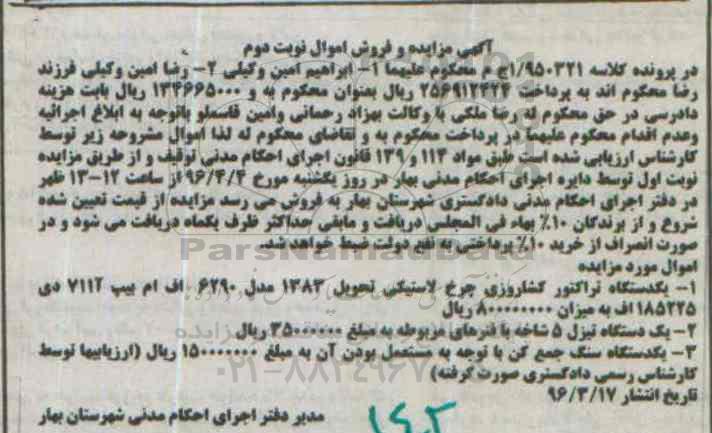 آگهی مزایده و فروش اموال نوبت دوم
در پرونده کلاسه 1/950321ج م محکوم علیهما 1- ابراهیم امین وکیلی 2- رضا امین وکیلی فرزند
رضا محکوم اند به پرداخت 256912424 ریال بعنوان محکوم به و 134665000 ریال بابت هزینه
دادرسی در حق محکوم له رضا ملکی با وکالت بهزاد رحمانی وامین قاسملو باتوجه به ابلاغ اجرائیه
وعدم اقدام محکوم علیهما در پرداخت محکوم به و تقاضای محکوم له لذا اموال مشروحه زیر توسط
کارشناس ارزیابی شده است طبق مواد 113 و 139 قانون اجرای احکام مدنی توقیف و از طریق مزایده
نوبت اول توسط دایره اجرای احکام مدنی بهار در روز یکشنبه مورخ 96/4/4 از ساعت 12-13 ظهر
در دفتر اجرای احکام مدنی دادگستری شهرستان بهار به فروش می رسد مزایده از قیمت تعیین شده
شروع و از برندگان 10% بهاء فی المجلس دریافت و مابقی حداکثر ظرف یکماه دریافت می شود و در
صورت انصراف از خرید 10% پرداختی به نفع دولت ضبط خواهد شد.
اموال مورد مزایده
1- یکدستگاه تراکتور کشاورزی چرخ لاستیکی تحویل 1383 مدل 6290 اف ام بیپ 7112 دی
185225 اف به میزان 80000000 ریال
2- یک دستگاه تیزل 5 شاخه با فنرهای مربوطه به مبلغ 3500000 ریال
3- یکدستگاه سنگ جمع کن با توجه به مستعمل بودن آن به مبلغ 150000000 ریال (ارزیابیها توسط
کارشناس رسمی دادگستری صورت گرفته)
تاریخ انتشار 96/3/17
مدیر دفتر اجرای احکام مدنی شهرستان بهار
ParsNamadData
021-88349670
1402